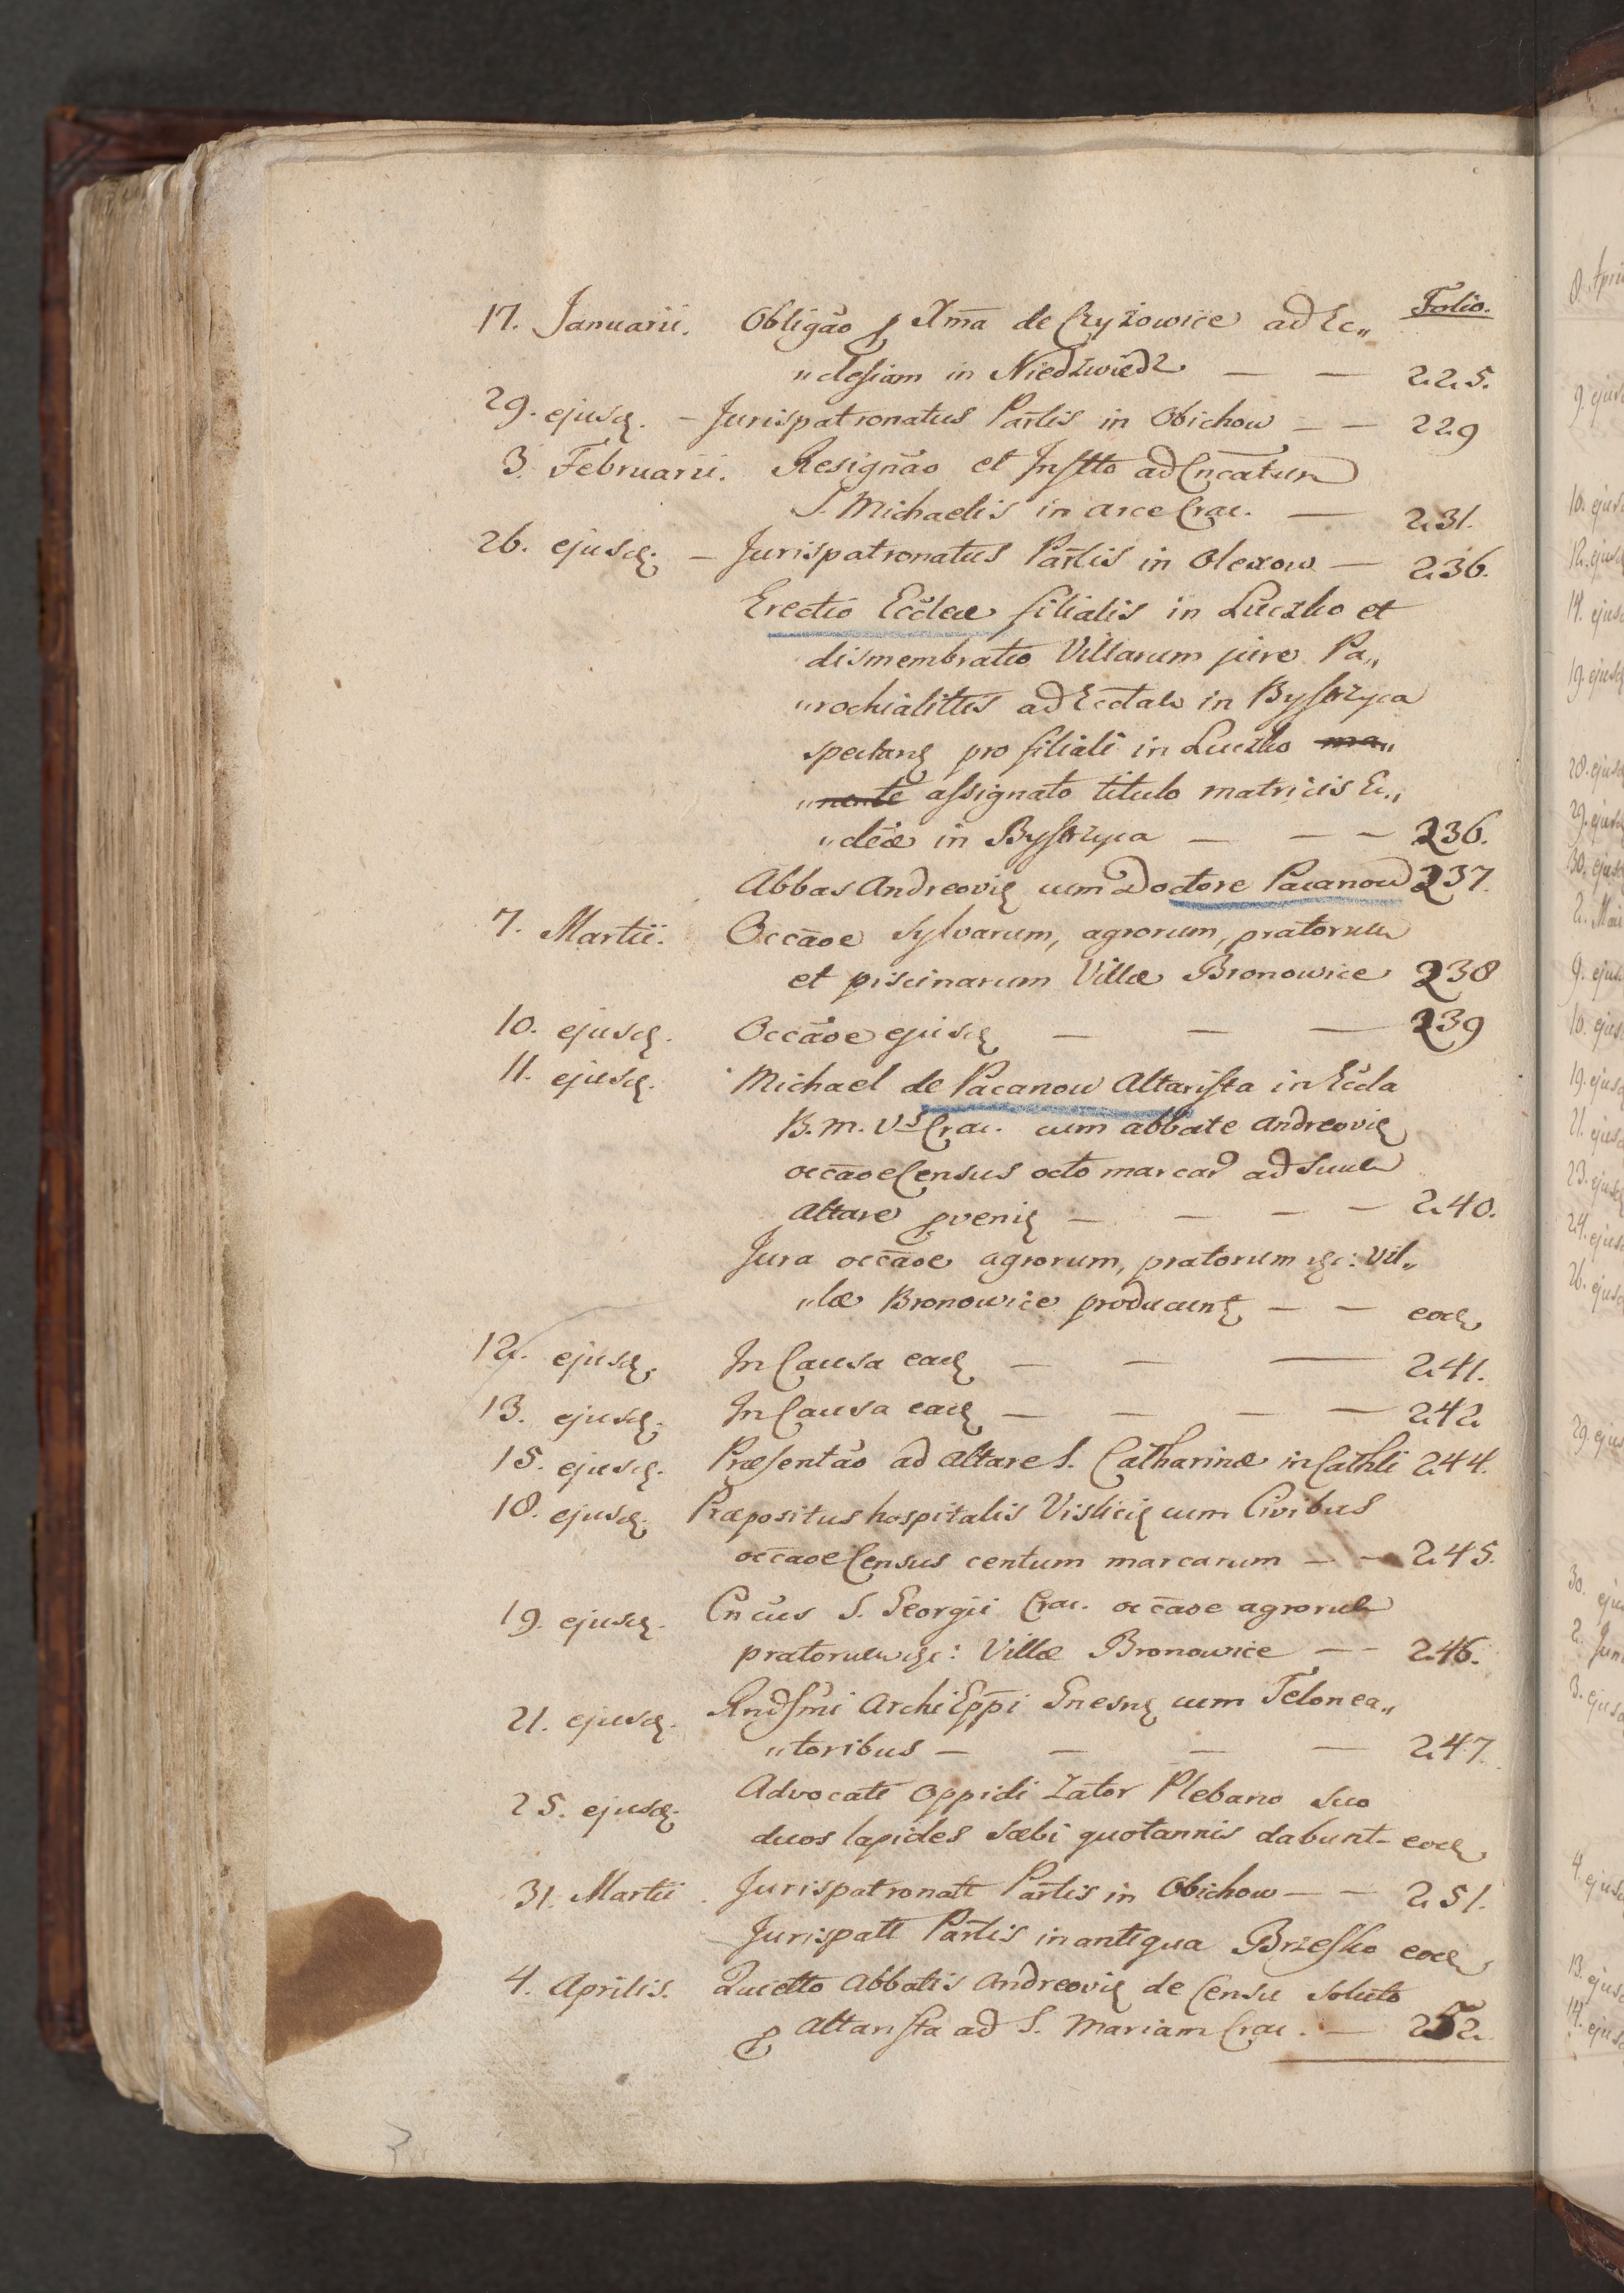 Folio.
17. Januarii. Obligao̅ p Xma̅ de Czyżowice ad Ec„
„clesiam in Niedzwiedz — — 225.
29. ejusd. – Jurispatronatus Par̅lis in Obichow — — 229
3. Februarii. Resigna̅o et Instto ad Cnca̅tum
S. Michaelis in arce Crac. — 231.
26. ejusd. – Jurispatronatus Par̅lis in Olexow — 236.
Erectio Eccleæ filialis in Luczko et
dismembratio Villarum jure Pa„
„rochialittes ad Ecclam in Bystrzyca
spectan pro filiali in Luczko ma„
„nente assignato titulo matricis Ec„
„cleæ in Bystrzyca — — — 236.
Abbas Andreovien cum Doctore Pacanow 237.
7. Martii. Occao̅e sylvarum, agrorum, pratorum
et piscinarum Villæ Bronowice 238
10. ejusd. Occao̅e ejusd — — — 239
11. ejusd. Michael de Pacanow Altarista in Eccla
B. M. Vs Crac. cum abbate Andreovien
occao̅e Census octo marcar ad suum
Altare pvenien — — — — 240.
Jura occao̅e agrorum, pratorum etc: Vil„
„læ Bronowice producunt — — eod
12. ejusd. In Causa ead — — — 241.
13. ejusd. In Causa ead — — — — 242
15. ejusd. Præsentao̅ ad Altare S. Catharinæ in Cathli 244.
18. ejusd. Præpositus hospitalis Vislicien cum Civibus
occao̅e Census centum marcarum — — 245.
19. ejusd. Cncus S. Georgii Crac. occao̅e agrorum
pratorum etc: Villæ Bronowice — — 246.
21. ejusd. Rndsmi Archi Eppi Gnesn cum Telonea„
„toribus — — — — 247.
25. ejusd. Advocati oppidi Zator Plebano suo
duos lapides sæbi quotannis dabunt – eod
31. Martii. Jurispatronatt Par̅lis in Obichow — — 251.
– Jurispatt Par̅lis in antiqua Brzesko eod
4. Aprilis. Quietto Abbatis Andreovien de Censu soluto
p Altarista ad S. Mariam Crac. — 252.